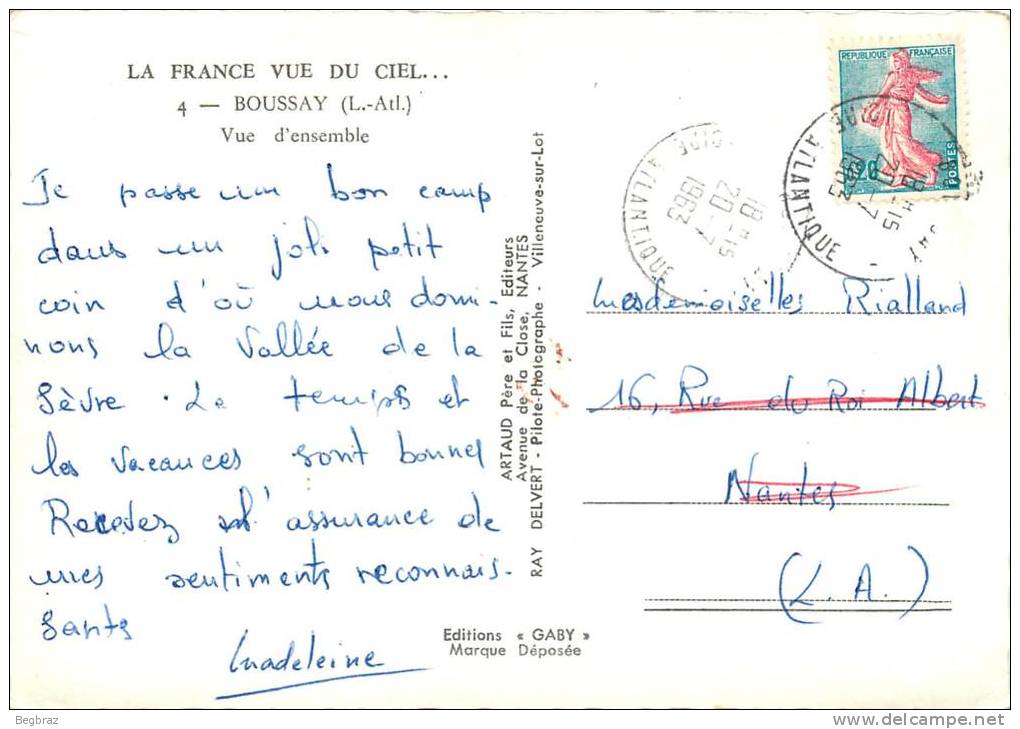 LA FRANCE VUE DU CIEL...
4 — BOUSSAY (L.-Atl.)
Vue d'ensemble
Je passe un bon camp
dans un joli petit
coin d'où nous domi-
nons la Vallée de la
Sèvre. Le temps et
les vacances sont bonnes
Recevez l'assurance de
mes sentiments reconnais-
sants
Madeleine
ARTAUD Père et Fils, Editeurs
Avenue de la Close, NANTES
RAY DELVERT - Pilote-Photographe - Villeneuve-sur-Lot
Editions « GABY »
Marque Déposée
REPUBLIQUE FRANÇAISE
0,20
POSTES
LOIRE ATLANTIQUE
18 H 15
20 - 7
1963
LOIRE ATLANTIQUE
18 H 15
20 - 7
1963
Mesdemoiselles Rialland
16, Rue du Roi Albert
Nantes
(L. A.)
Begbraz
www.delcampe.net